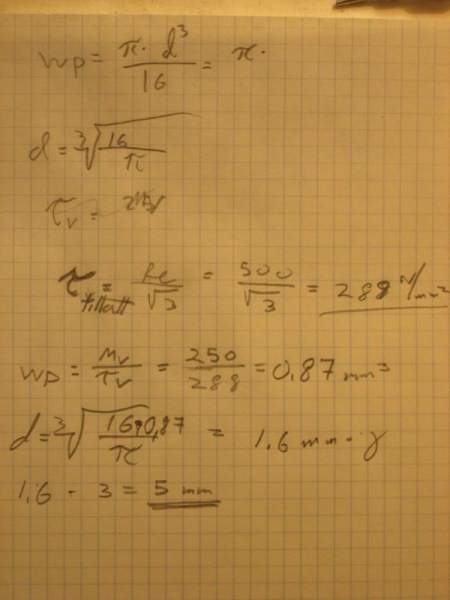 Wp = π · d³ / 16 = π ·
d = ³√(16 / π)
τv =
τ tillatt = Re / √3 = 500 / √3 = 288 N/mm²
Wp = Mv / τv = 250 / 288 = 0,87 mm³
d = ³√(16·0,87 / π) = 1.6 mm ·
1,6 · 3 = 5 mm